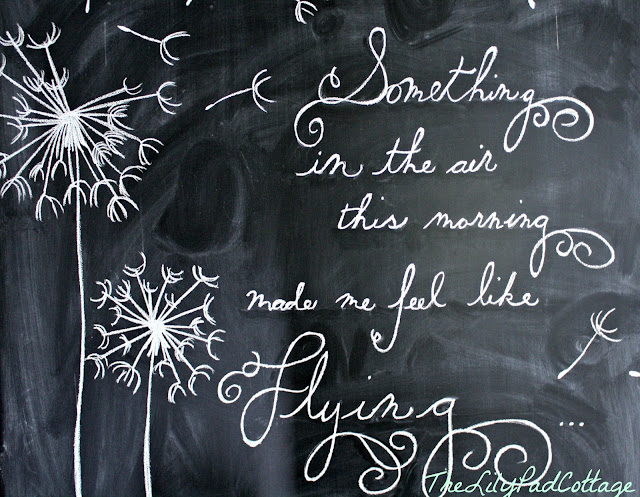 Something
in the air
this morning
made me feel like
Flying...
TheLilyPadCottage